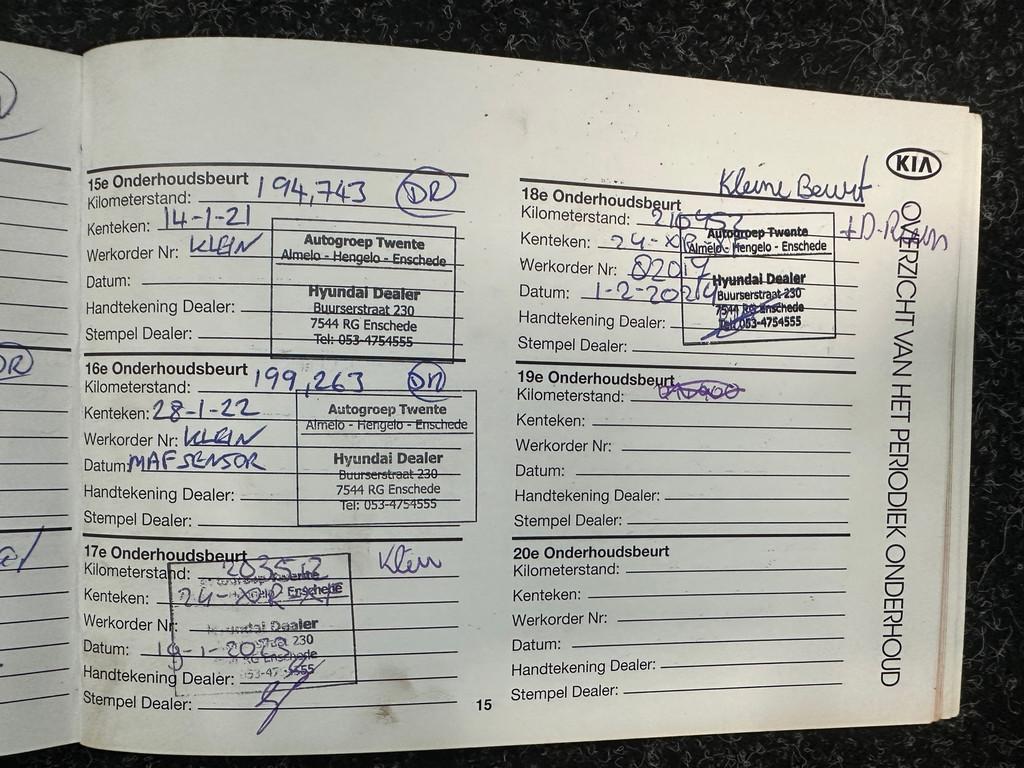 15e Onderhoudsbeurt
Kilometerstand: 194,743 DR
Kenteken: 14-1-21
Werkorder Nr: KLEIN
Datum:
Handtekening Dealer:
Stempel Dealer:
Autogroep Twente
Almelo - Hengelo - Enschede
Hyundai Dealer
Buurserstraat 230
7544 RG Enschede
Tel: 053-4754555
16e Onderhoudsbeurt
Kilometerstand: 199,263
Kenteken: 28-1-22
Werkorder Nr: KLEIN
Datum: MAF SENSOR
Handtekening Dealer:
Stempel Dealer:
Autogroep Twente
Almelo - Hengelo - Enschede
Hyundai Dealer
Buurserstraat 230
7544 RG Enschede
Tel: 053-4754555
17e Onderhoudsbeurt Klein
Kilometerstand:
Kenteken: 24-
Werkorder Nr:
Datum: 19-1-2023
Handtekening Dealer:
Stempel Dealer:
Enschede
Hyundai Dealer
230
RG Enschede
053-4754555
15
KIA
Kleine Beurt
18e Onderhoudsbeurt
Kilometerstand:
Kenteken: 24-
Werkorder Nr:
Datum: 1-2-2024
Handtekening Dealer:
Stempel Dealer:
Autogroep Twente
Almelo - Hengelo - Enschede
Hyundai Dealer
Buurserstraat 230
7544 RG Enschede
Tel: 053-4754555
19e Onderhoudsbeurt
Kilometerstand:
Kenteken:
Werkorder Nr:
Datum:
Handtekening Dealer:
Stempel Dealer:
20e Onderhoudsbeurt
Kilometerstand:
Kenteken:
Werkorder Nr:
Datum:
Handtekening Dealer:
Stempel Dealer:
OVERZICHT VAN HET PERIODIEK ONDERHOUD